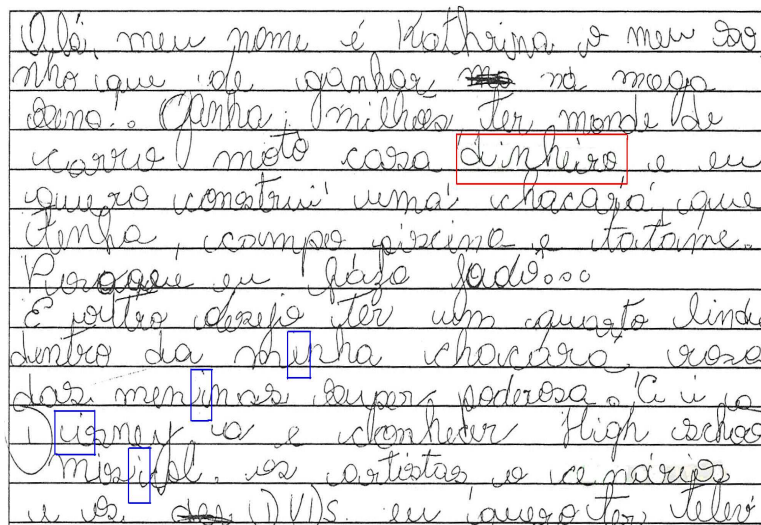 Olá, meu nome é Kathrina o meu so
nho que de ganhar na mega
sena.. Ganha, milhões ter monde de
carro moto casa dinheiro e eu
quero construi uma chacará, que
tenha, campo piscina e tatame.
E outro desejo ter um quarto lindo
dentro da minha chacára rosa
das meninas super, poderosa.
Disney e conhecer High schoo
misicol. os artistas o cenários
e os DVDs. eu quero ter telev